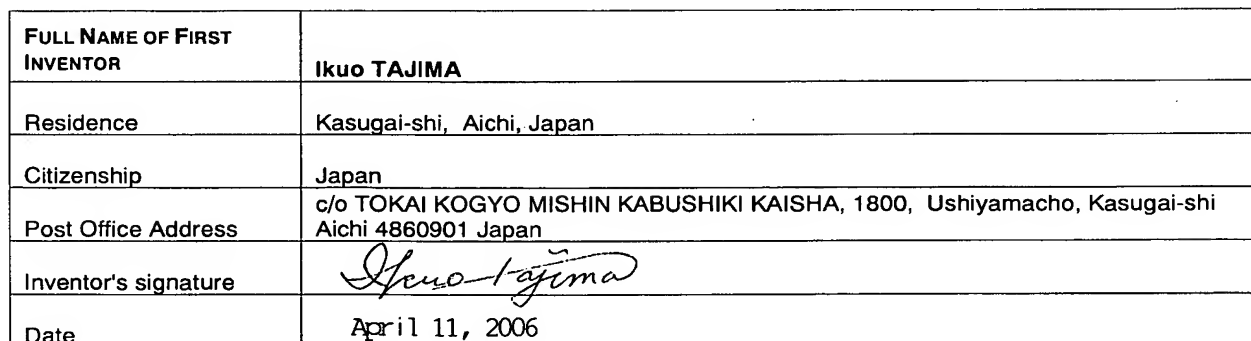 FULL NAME OF FIRST
INVENTOR
Ikuo TAJIMA
Residence
Kasugai-shi, Aichi, Japan
Citizenship
Japan
Post Office Address
c/o TOKAI KOGYO MISHIN KABUSHIKI KAISHA, 1800, Ushiyamacho, Kasugai-shi
Aichi 4860901 Japan
Inventor's signature
Ikuo Tajima
Date
April 11, 2006